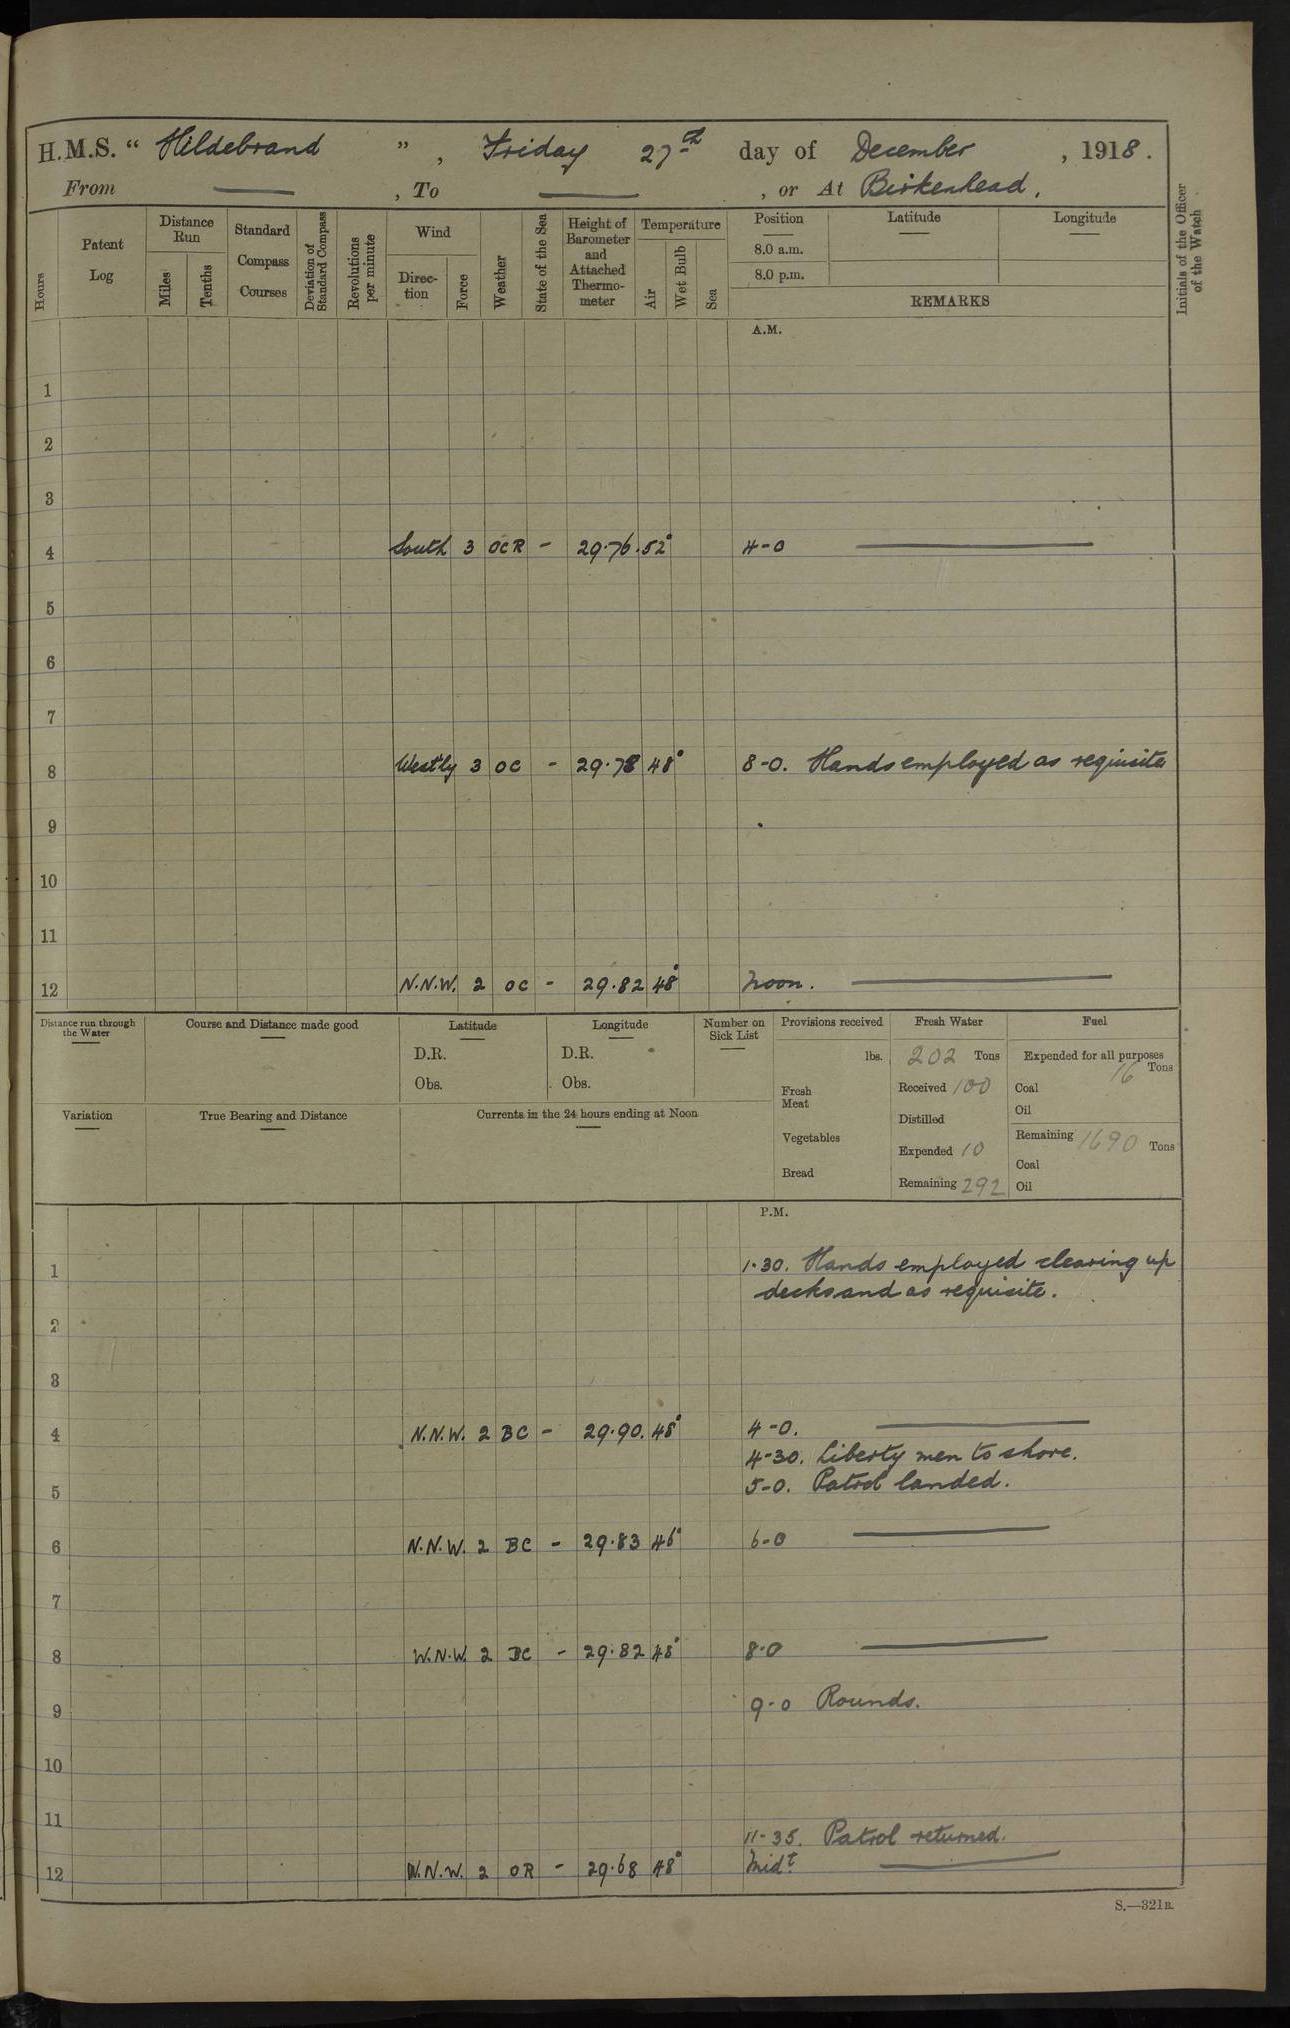 H.M.S. “ Hildebrand ” , Friday 27th day of December , 1918.
From — , To — , or At Birkenhead.
Hours
Patent Log
Distance Run
Miles
Tenths
Standard Compass Courses
Deviation of Standard Compass
Revolutions per minute
Wind
Direc-tion
Force
Weather
State of the Sea
Height of Barometer and Attached Thermo-meter
Temperature
Air
Wet Bulb
Sea
Position
8.0 a.m.
8.0 p.m.
Latitude
Longitude
REMARKS
Initials of the Officer of the Watch
A.M.
1
2
3
4 South 3 OCR - 29.76. 52° 4-0 —
5
6
7
8 Westly 3 OC - 29.78 48° 8-0. Hands employed as requisite
9
10
11
12 N.N.W. 2 OC - 29.82 48° Noon. —
Distance run through the Water
Course and Distance made good
Latitude
D.R.
Obs.
Longitude
D.R.
Obs.
Number on Sick List
Variation
True Bearing and Distance
Currents in the 24 hours ending at Noon
Provisions received
lbs.
Fresh Meat
Vegetables
Bread
Fresh Water
202 Tons
Received 100
Distilled
Expended 10
Remaining 292
Fuel
Expended for all purposes
16 Tons
Coal
Oil
Remaining 1690 Tons
Coal
Oil
P.M.
1 1.30. Hands employed clearing up
decks and as requisite.
2
3
4 N.N.W. 2 BC - 29.90. 48° 4-0. —
4-30. Liberty men to shore.
5 5-0. Patrol landed.
6 N.N.W. 2 BC - 29.83 46° 6-0 —
7
8 W.N.W. 2 BC - 29.82 48° 8.0 —
9 9-0 Rounds.
10
11
11-35. Patrol returned.
12 W.N.W. 2 OR - 29.68 48° Midt. —
S.—321B.